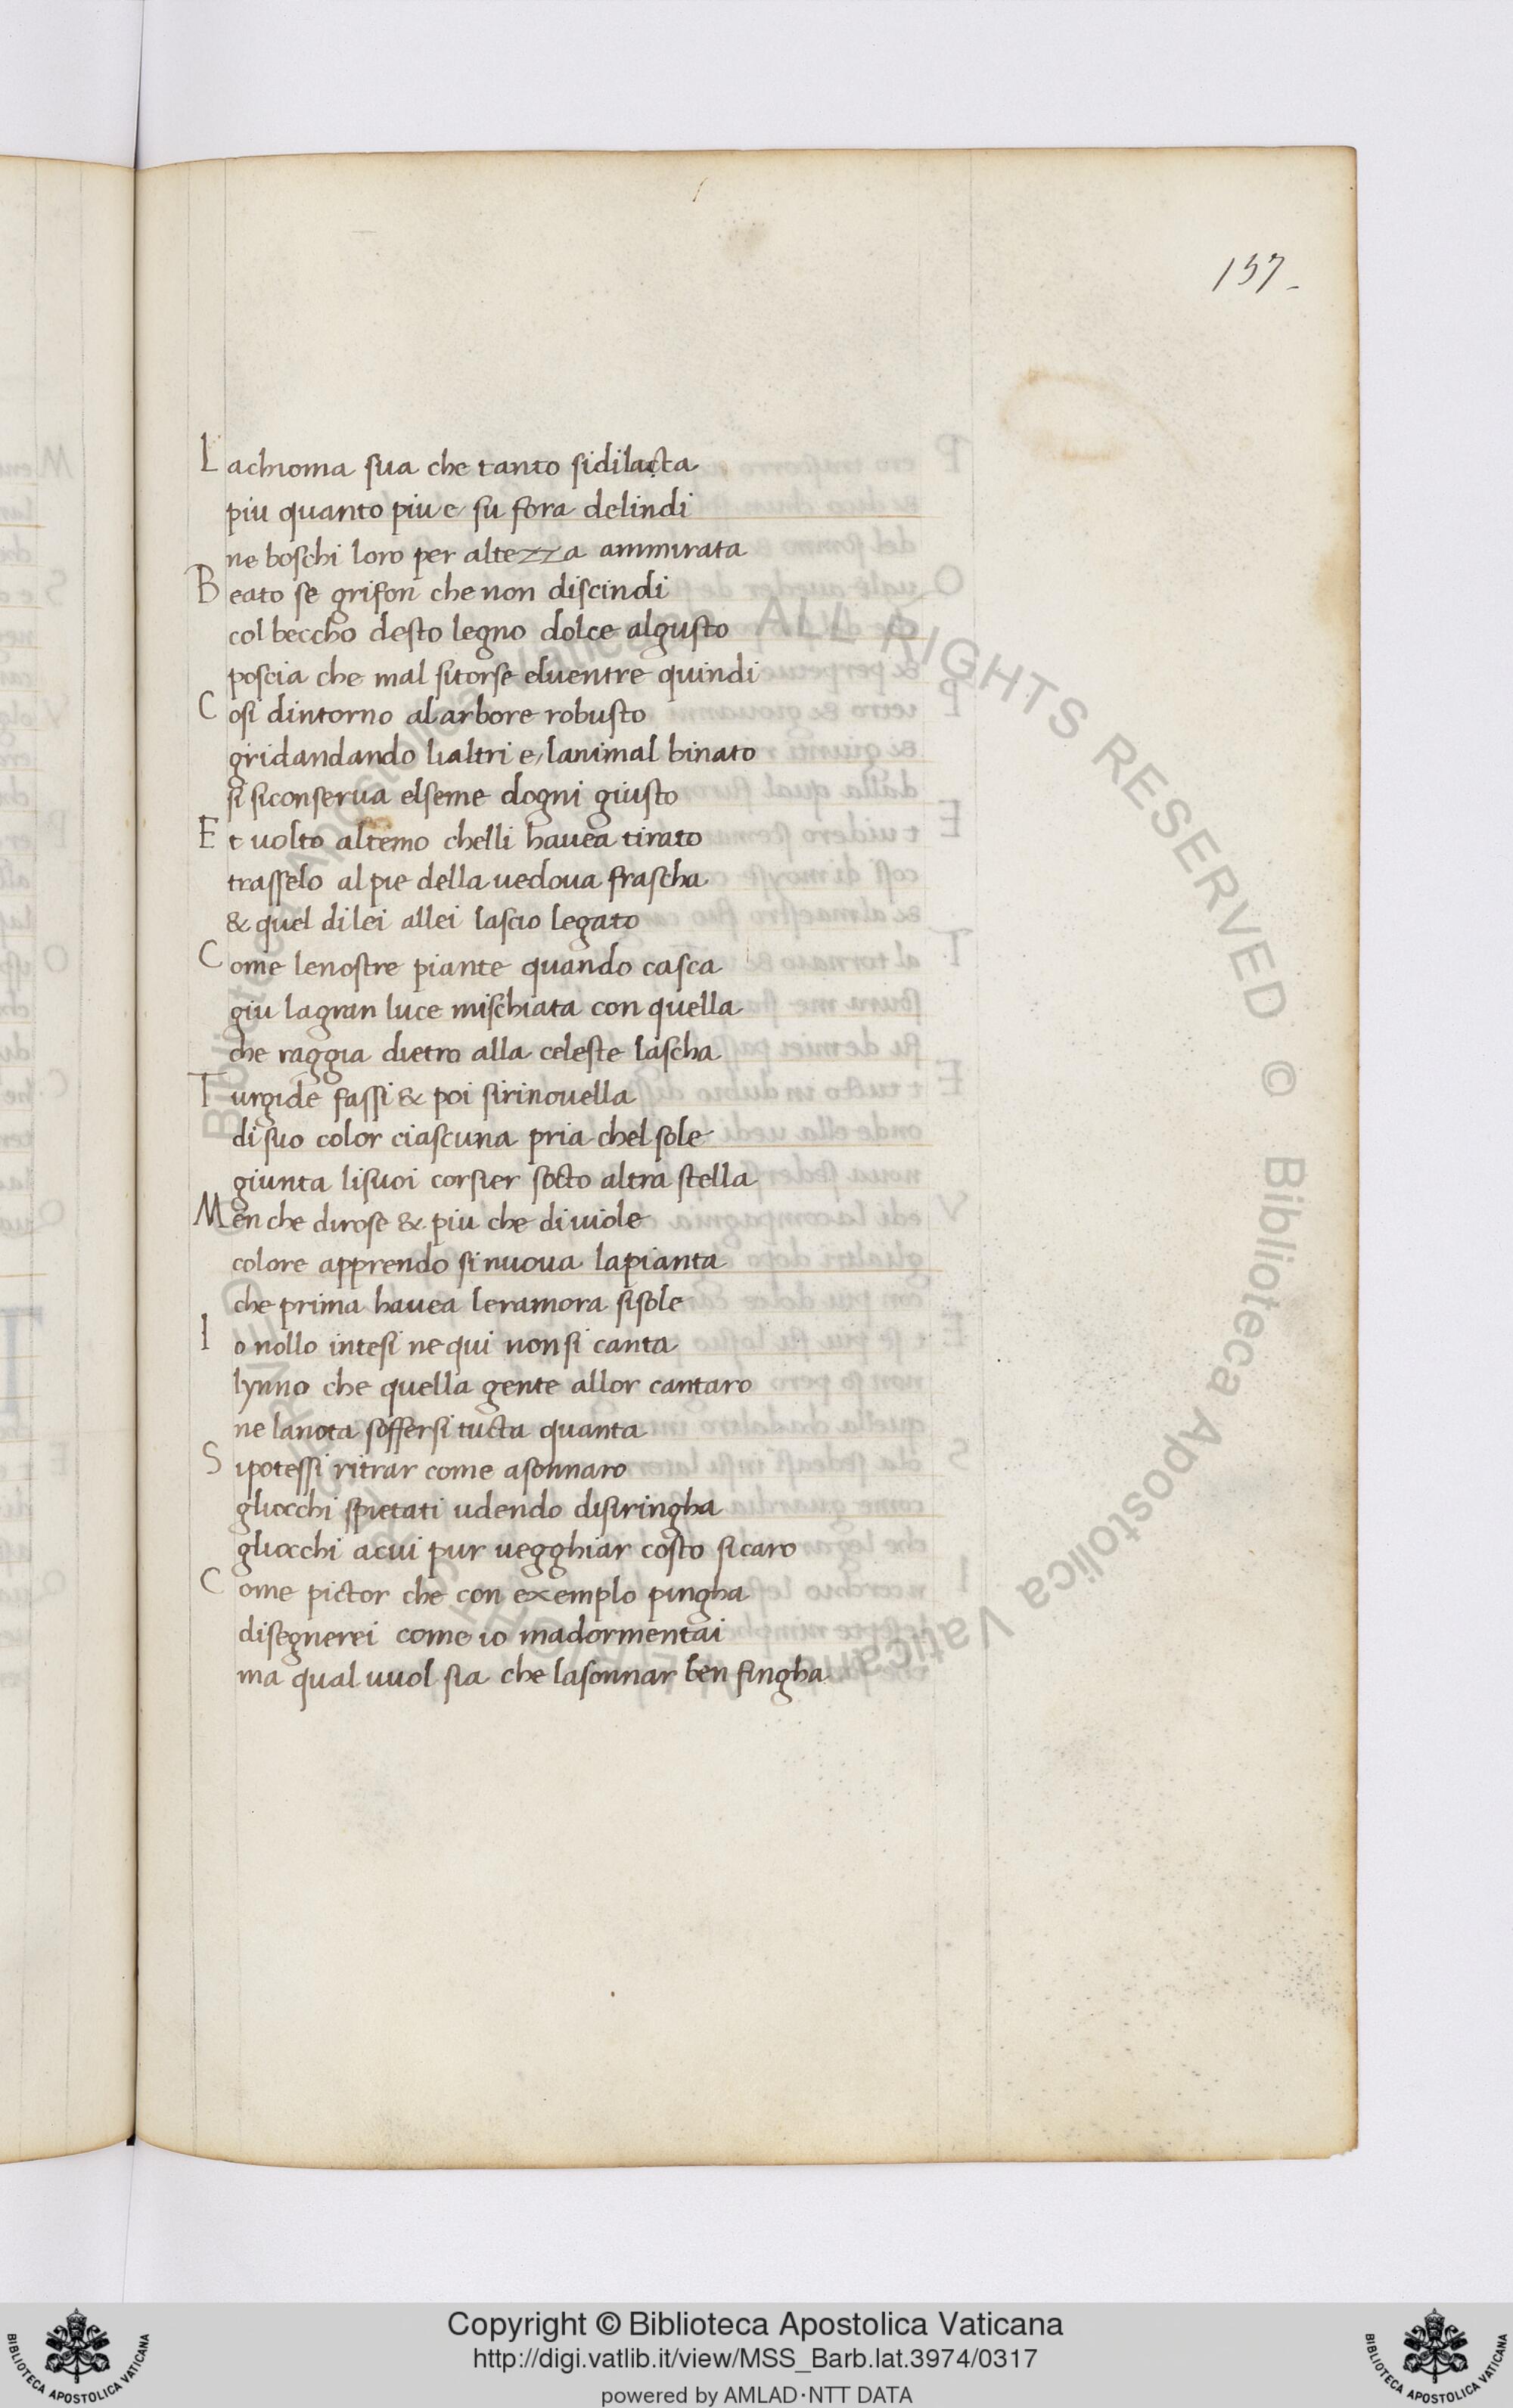 157
Lachioma sua che tanto sidilacta
piu quanto piu e su fora delindi
ne boschi loro per altezza ammirata
Beato se grifon che non discindi
col beccho desto legno dolce algusto
poscia che mal sitorse eluentre quindi
Cosi dintorno alarbore robusto
gridandando lialtri e lanimal binato
si siconserua elseme dogni giusto
Et uolto altemo chelli hauea tirato
trasselo alpie della uedoua frascha
& quel dilei allei lascio legato
Come lenostre piante quando casca
giu lagran luce mischiata con quella
che raggia dietro alla celeste lascha
Turgide fassi & poi sirinouella
disuo color ciascuna pria chel sole
giunta lisuoi corsier socto altra stella
Men che dirose & piu che diuiole
colore apprendo sinuoua lapianta
che prima hauea leramora sisole
Io nollo intesi ne qui nonsi canta
lynno che quella gente allor cantaro
ne lanota soffersi tucta quanta
Sipotessi ritrar come asonnaro
gliocchi spietati udendo disiringha
gliocchi acui pur uegghiar costo sicaro
Come pictor che con exemplo pingha
disegnerei come io madormentai
ma qual uuol sia che lasonnar ben fingha
Biblioteca Apostolica Vaticana ALL RIGHTS RESERVED © Biblioteca Apostolica Vaticana ALL RIGHTS RESERVED ©
Copyright © Biblioteca Apostolica Vaticana
http://digi.vatlib.it/view/MSS_Barb.lat.3974/0317
powered by AMLAD·NTT DATA
BIBLIOTECA APOSTOLICA VATICANA
BIBLIOTECA APOSTOLICA VATICANA